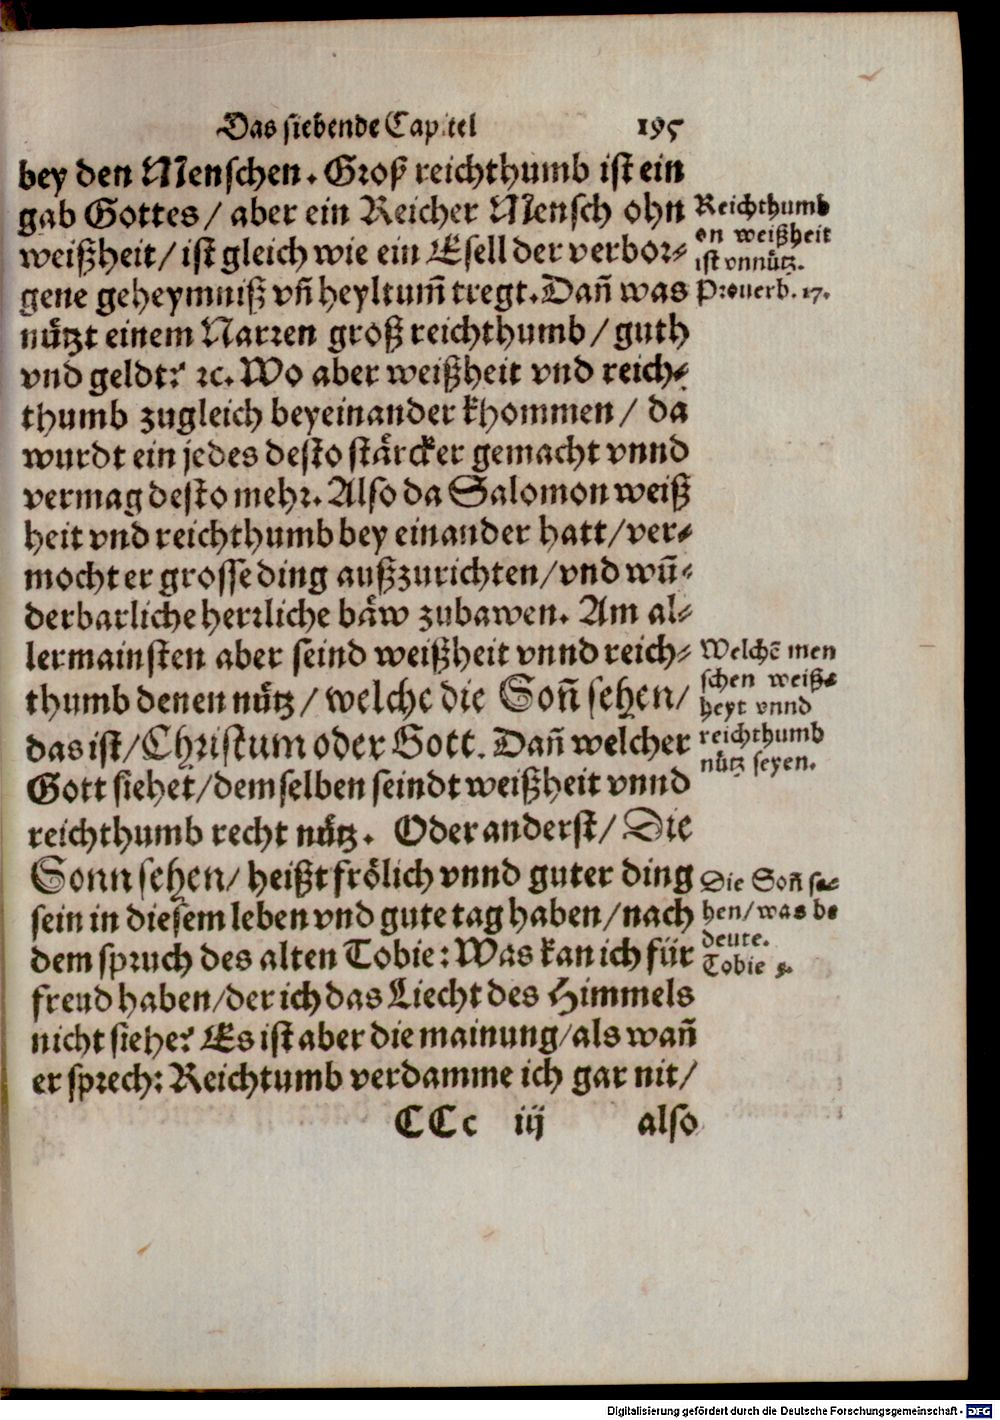 Das siebende Capitel 195
bey den Menschen. Groß reichthumb ist ein
gab Gottes/ aber ein Reicher Mensch ohn
weißheit/ ist gleich wie ein Esell der verbor⸗
gene geheymniß vñ heyltum̃ tregt. Dañ was
nützt einem Narren groß reichthumb/ guth
vnd geldt? ꝛc. Wo aber weißheit vnd reich⸗
thumb zugleich beyeinander khommen/ da
wurdt ein jedes desto stärcker gemacht vnnd
vermag desto mehr. Also da Salomon weiß
heit vnd reichthumb bey einander hatt/ ver⸗
mocht er grosse ding außzurichten/ vnd wũ⸗
derbarliche herrliche bäw zubawen. Am al⸗
lermainsten aber seind weißheit vnnd reich⸗
thumb denen nütz/ welche die Soñ sehen/
das ist/ Christum oder Gott. Dañ welcher
Gott siehet/ dem selben seindt weißheit vnnd
reichthumb recht nütz. Oder anderst/ Die
Sonn sehen/ heißt frölich vnnd guter ding
sein in diesem leben vnd gute tag haben/ nach
dem spruch des alten Tobie: Was kan ich für
freud haben/ der ich das Liecht des Himmels
nicht siehe? Es ist aber die mainung/ als wañ
er sprech: Reichtumb verdamme ich gar nit/
CCc iij also
Reichthumb
on weißheit
ist vnnütz.
Prouerb. 17.
Welchẽ men
schen weiß⸗
heyt vnnd
reichthumb
nütz seyen.
Die Soñ se⸗
hen/ was be
deute.
Tobie 5.
Digitalisierung gefördert durch die Deutsche Forschungsgemeinschaft - DFG